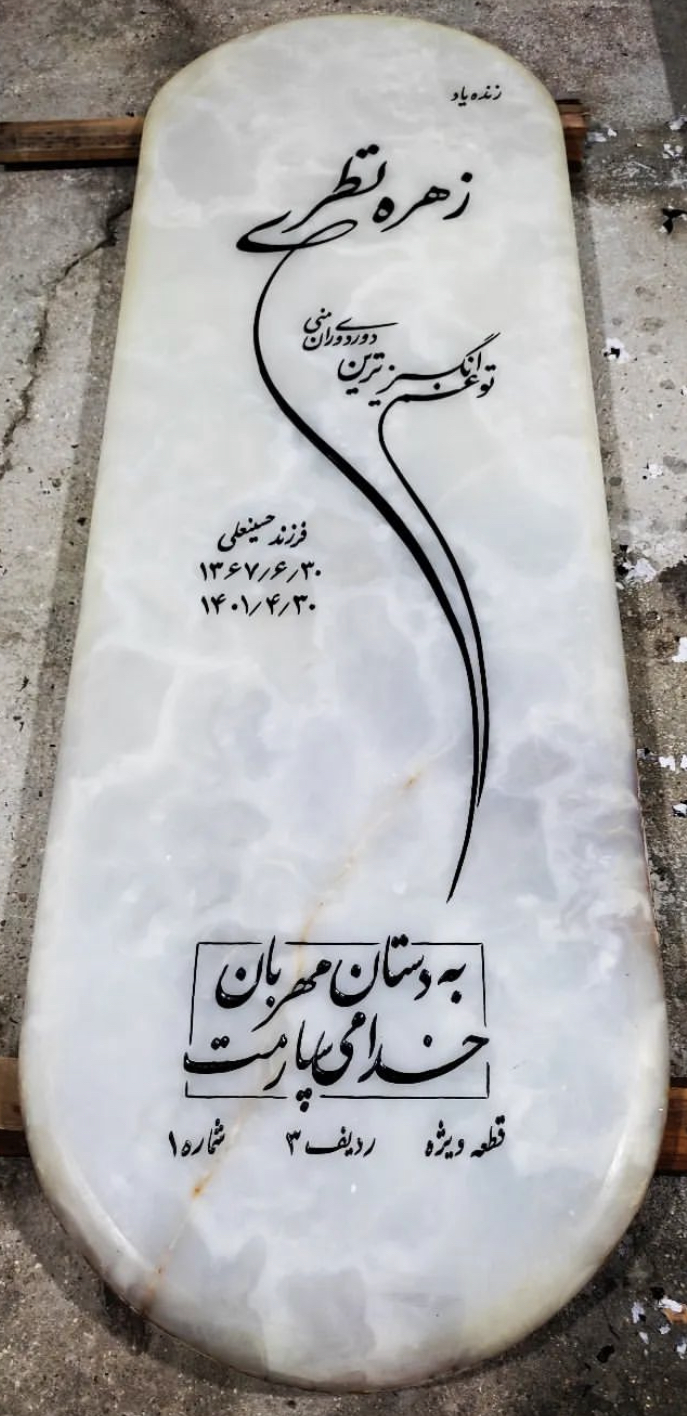 زنده یاد
زهره نظری
تو غم انگیزترین
دوری دوران منی
فرزند حسینعلی
۱۳۶۷/۶/۳۰
۱۴۰۱/۴/۳۰
به دستان مهربان
خدا می سپارمت
قطعه ویژه ردیف ۳ شماره ۱